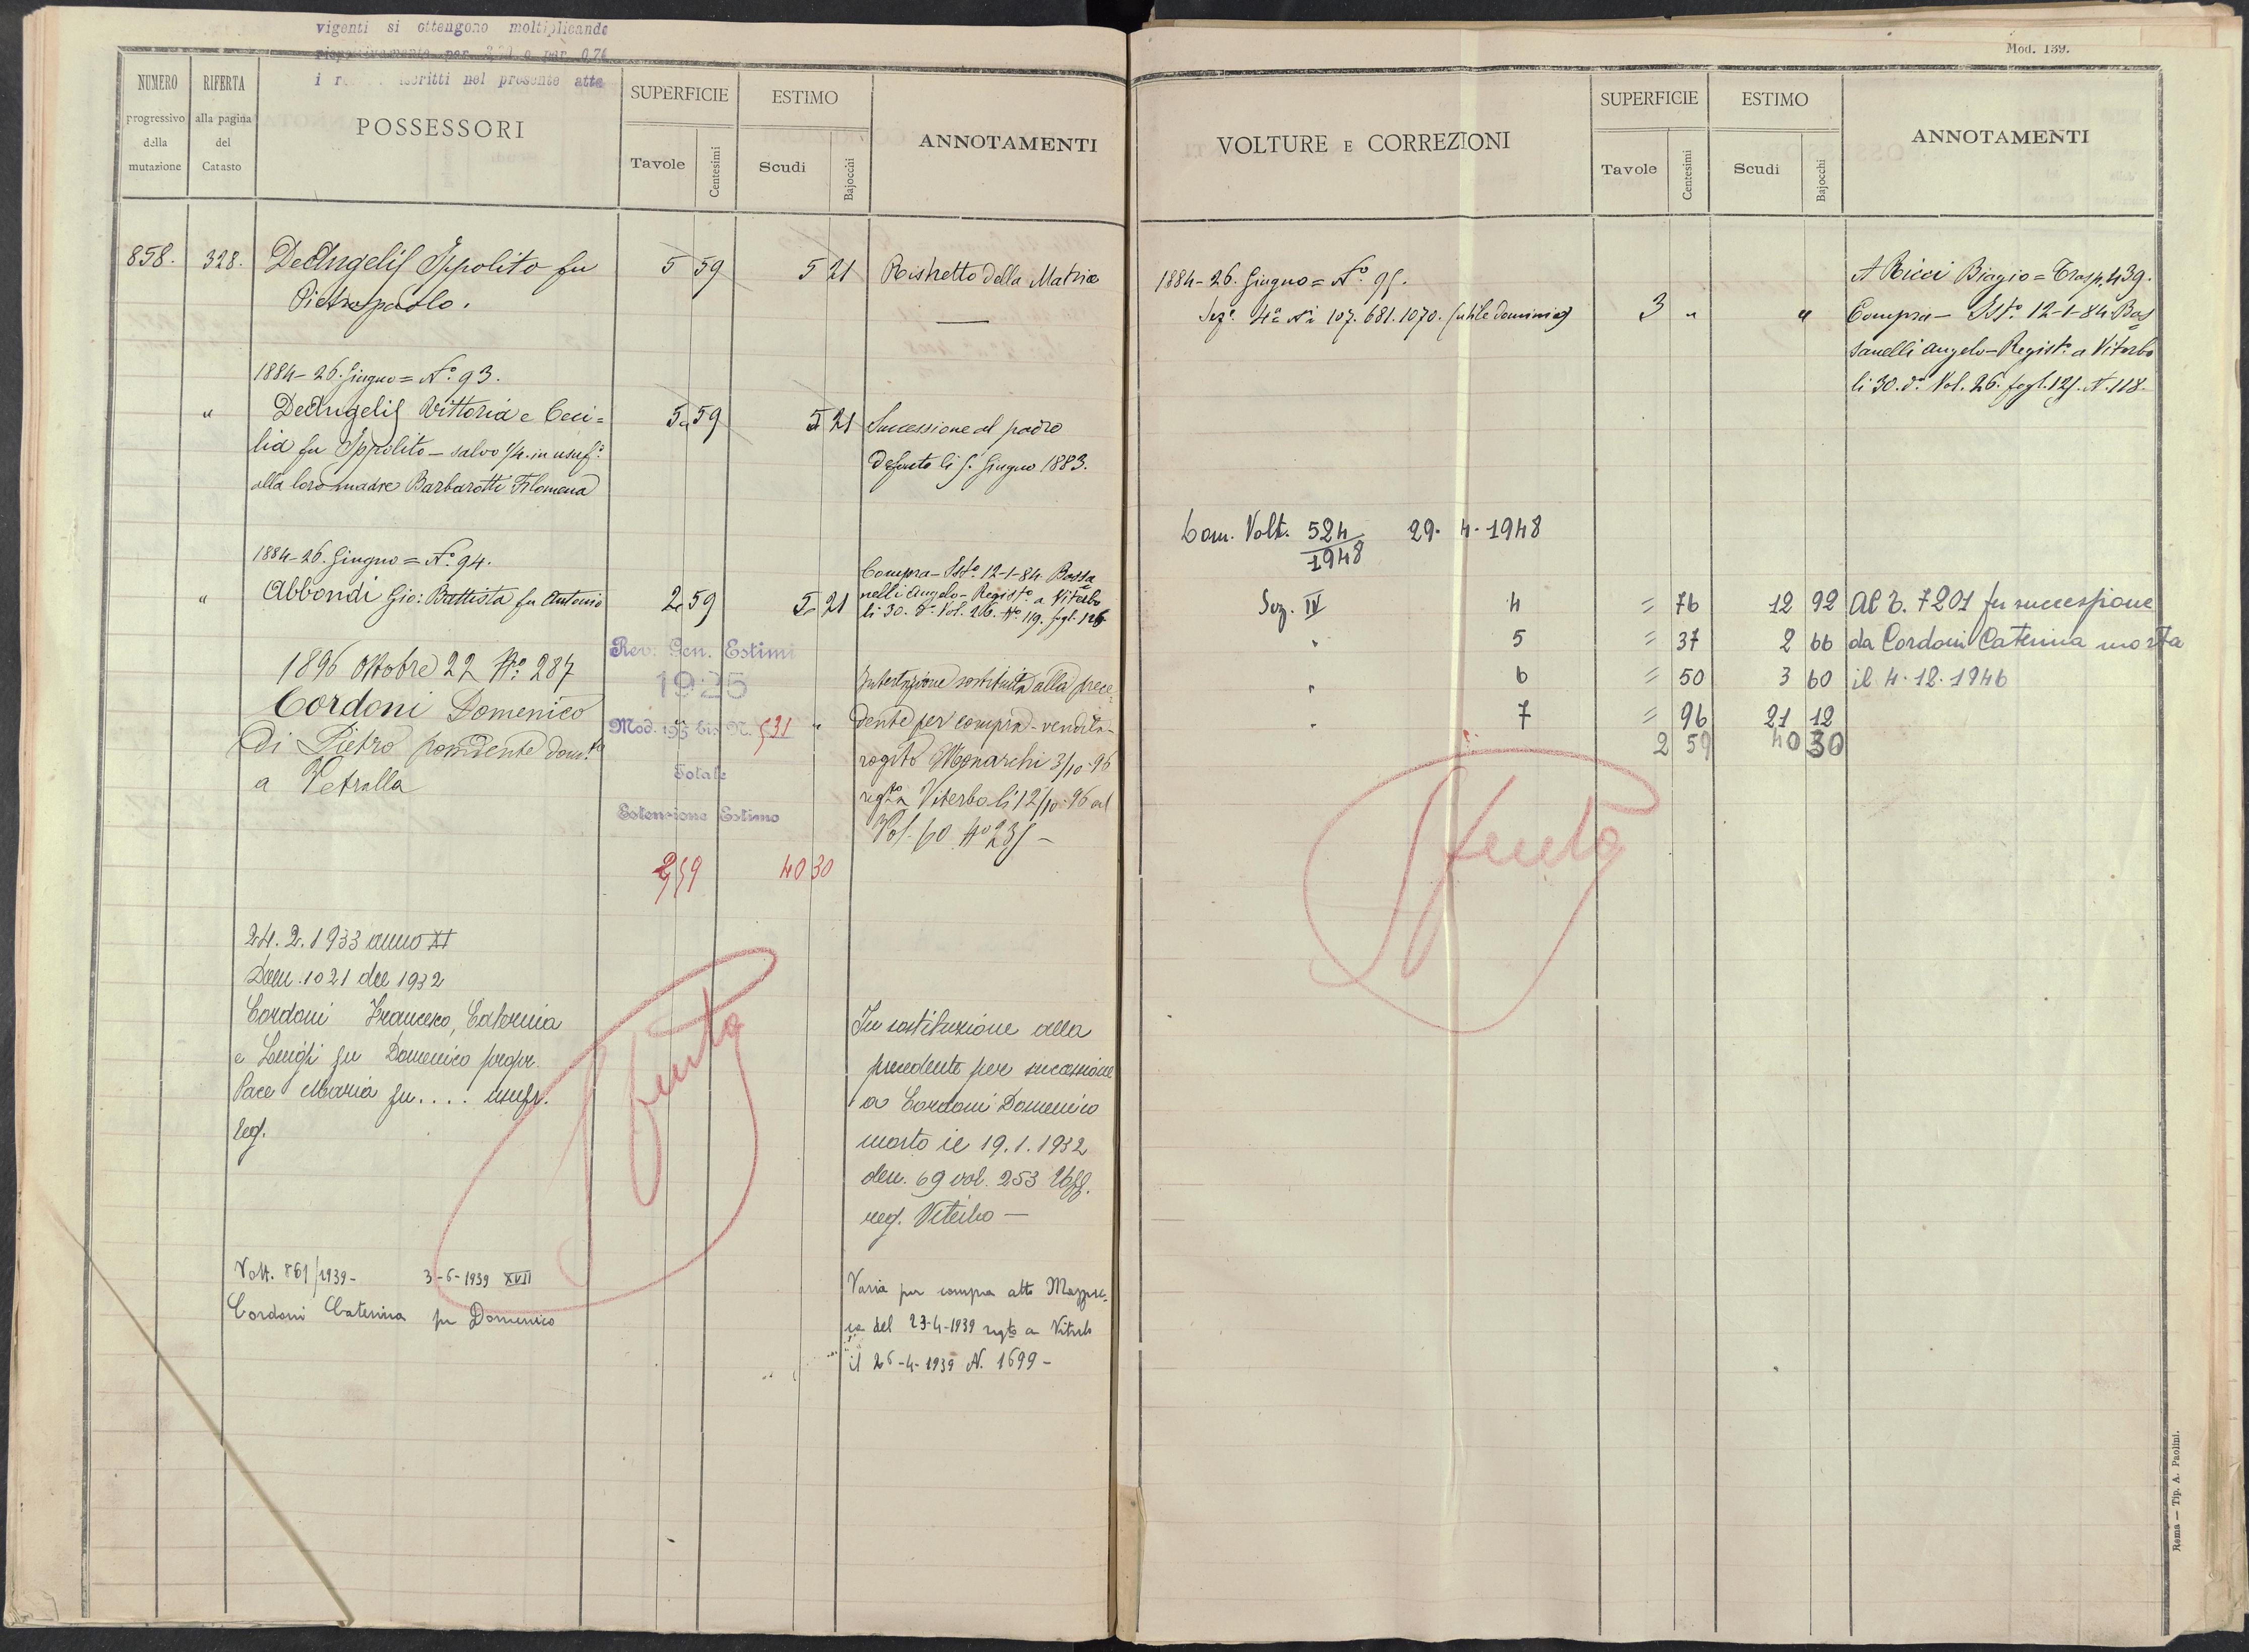 vigenti si ottengono moltiplicando
rispettivamente per
i iscritti nel presente atto
NUMERO
progressivo
della
mutazione
RIFERTA
alla pagina
del
Catasto
POSSESSORI
SUPERFICIE
Tavole
Centesimi
ESTIMO
Scudi
Bajocchi
ANNOTAMENTI
858. 328. DeAngelis Ippolito fu 5 59 5 21 Ristretto della Matrice
Pietropaolo.
1884 - 26. Giugno = N.º 93.
" DeAngelis Vittoria e Ceci= 5 59 5 21 Successione al padre
lia fu Ippolito - salvo 1/4. in usuf.º defunto li 5. Giugno 1883.
alla loro madre Barbarotti Filomena
1884 - 26. Giugno = N.º 94.
" Abbondi Gio: Battista fu Antonio 2 59 5 21
Compra - Ist.º 12-1-84 Bassa
nelli Angelo - Regist.º a Viterbo
li 30. d.º Vol. 26. N.º 119. fogl. 126
1896 Ottobre 22 N.º 287
Cordoni Domenico
di Pietro possidente dom.to
a Vetralla
Rev. Gen. Estimi
1925
Mod. 195 bis N. 531
Totale
Estensione Estimo
2 59 40 30
Intestazione sostituita alla prece
dente per compra - vendita -
rogito Monarchi 3/10-96
reg.to a Viterbo li 12/10-96 al
Vol. 60 N.º 235 -
24. 2. 1933 anno XI
Dom. 1021 del 1932
Cordoni Francesco, Caterina
e Luigi fu Domenico propr.
Pace Maria fu .... usufr.
leg.
Spenta
In sostituzione alla
precedente per successione
a Cordoni Domenico
morto il 19. 1. 1932
den. 69 vol. 253 Uff.
reg. Viterbo -
Volt. 861/1939 - 3-6-1939 XVII
Cordoni Caterina fu Domenico
Varia per compra atto
del 23-4-1939 regto a Viterbo
il 26-4-1939 N. 1699 -
Mod. 139.
VOLTURE E CORREZIONI
SUPERFICIE
Tavole
Centesimi
ESTIMO
Scudi
Bajocchi
ANNOTAMENTI
1884 - 26. Giugno = N.º 95.
Sez.e 4.a N.i 107. 681. 1070. (utile dominio) 3 " "
A Ricci Biagio = Trasp. 439.
Compra - Ist.º 12-1-84 Bas
sanelli Angelo - Regist.º a Viterbo
li 30. d.º Vol. 26. fogl. 125. N. 118.
Dom. Volt. 524/1948 29. 4. 1948
Sez. IV 4 = 76 12 92 Al T. 7201 per successione
" 5 = 37 2 66 da Cordoni Caterina morta
" 6 = 50 3 60 il 4. 12. 1946
" 7 = 96 21 12
2 59 40 30
Spenta
Roma — Tip. A. Paolini.